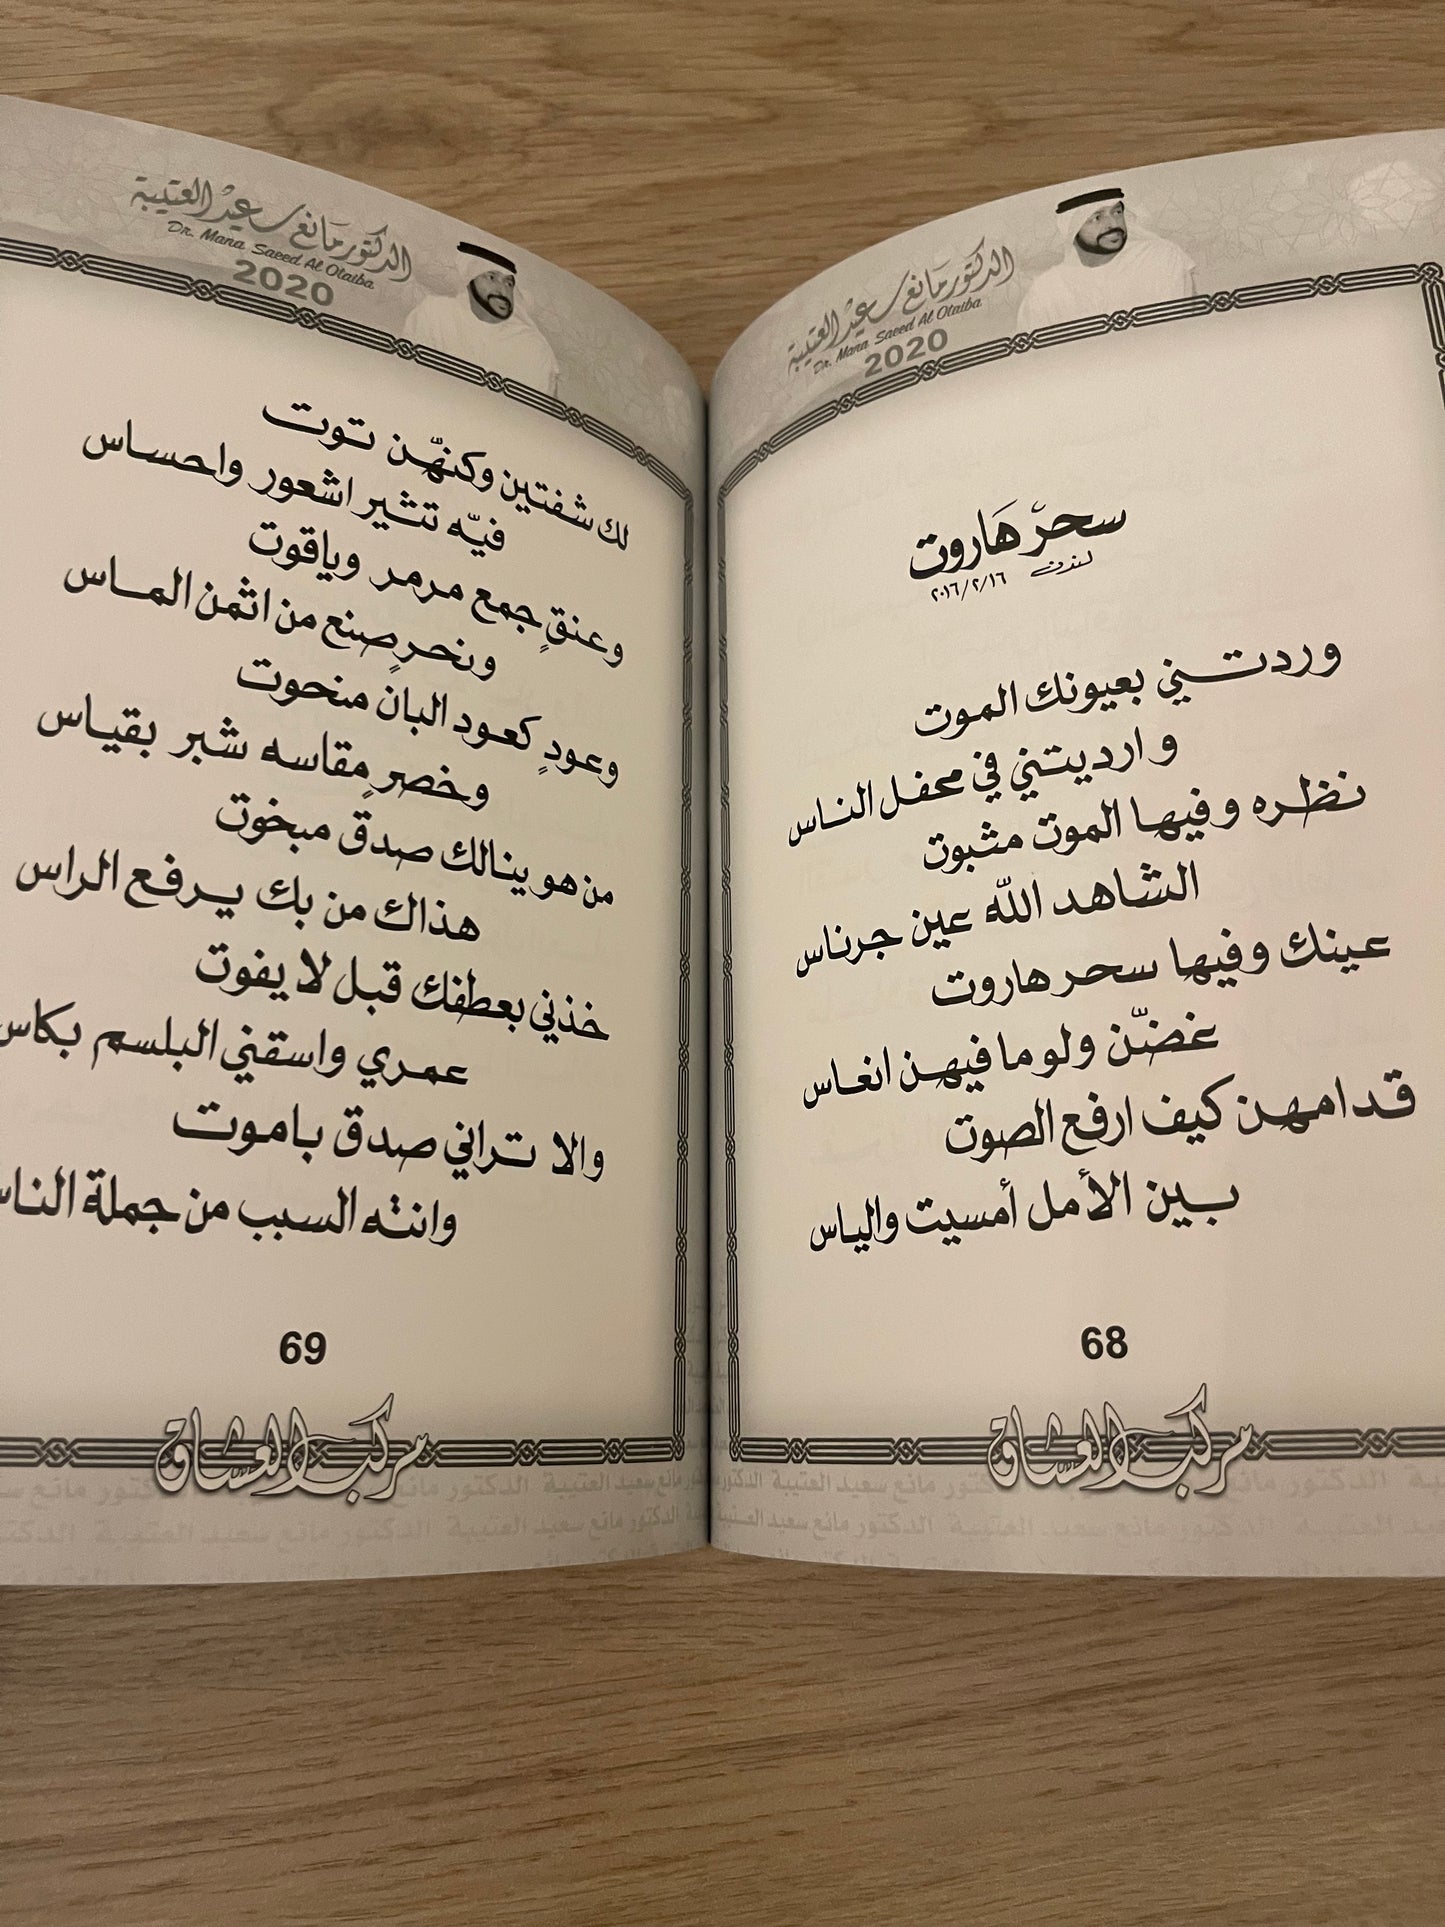 الدكتور مانع سعيد العتيبة
Dr. Mana Saeed Al Otaiba
2020
سحر هَاروت
لندن ٢٠١٦/٢/١٦
وردتني بعيونك الموت
وارديتني في محفل الناس
نظره وفيها الموت مثبوت
الشاهد اللّه عين جرناس
عينك وفيها سحر هاروت
غضّن ولو ما فيهن انغاس
قدامهن كيف ارفع الصوت
بين الأمل أمسيت والياس
68
مركب العشاق
الدكتور مانع سعيد العتيبة
الدكتور مَانع سعيد العتيبة
Dr. Mana Saeed Al Otaiba
2020
لك شفتين وكنهّن توت
فيّه تثير اشعور واحساس
وعنقٍ جمع مرمر وياقوت
ونحرٍ صنع من اثمن الماس
وعودٍ كعود البان منحوت
وخصرٍ مقاسه شبر بقياس
من هو ينالك صدق مبخوت
هذاك من بك يرفع الراس
خذني بعطفك قبل لا يفوت
عمري واسقني البلسم بكاس
والا تراني صدق باموت
وانته السبب من جملة الناس
69
مركب العشاق
الدكتور مانع سعيد العتيبة